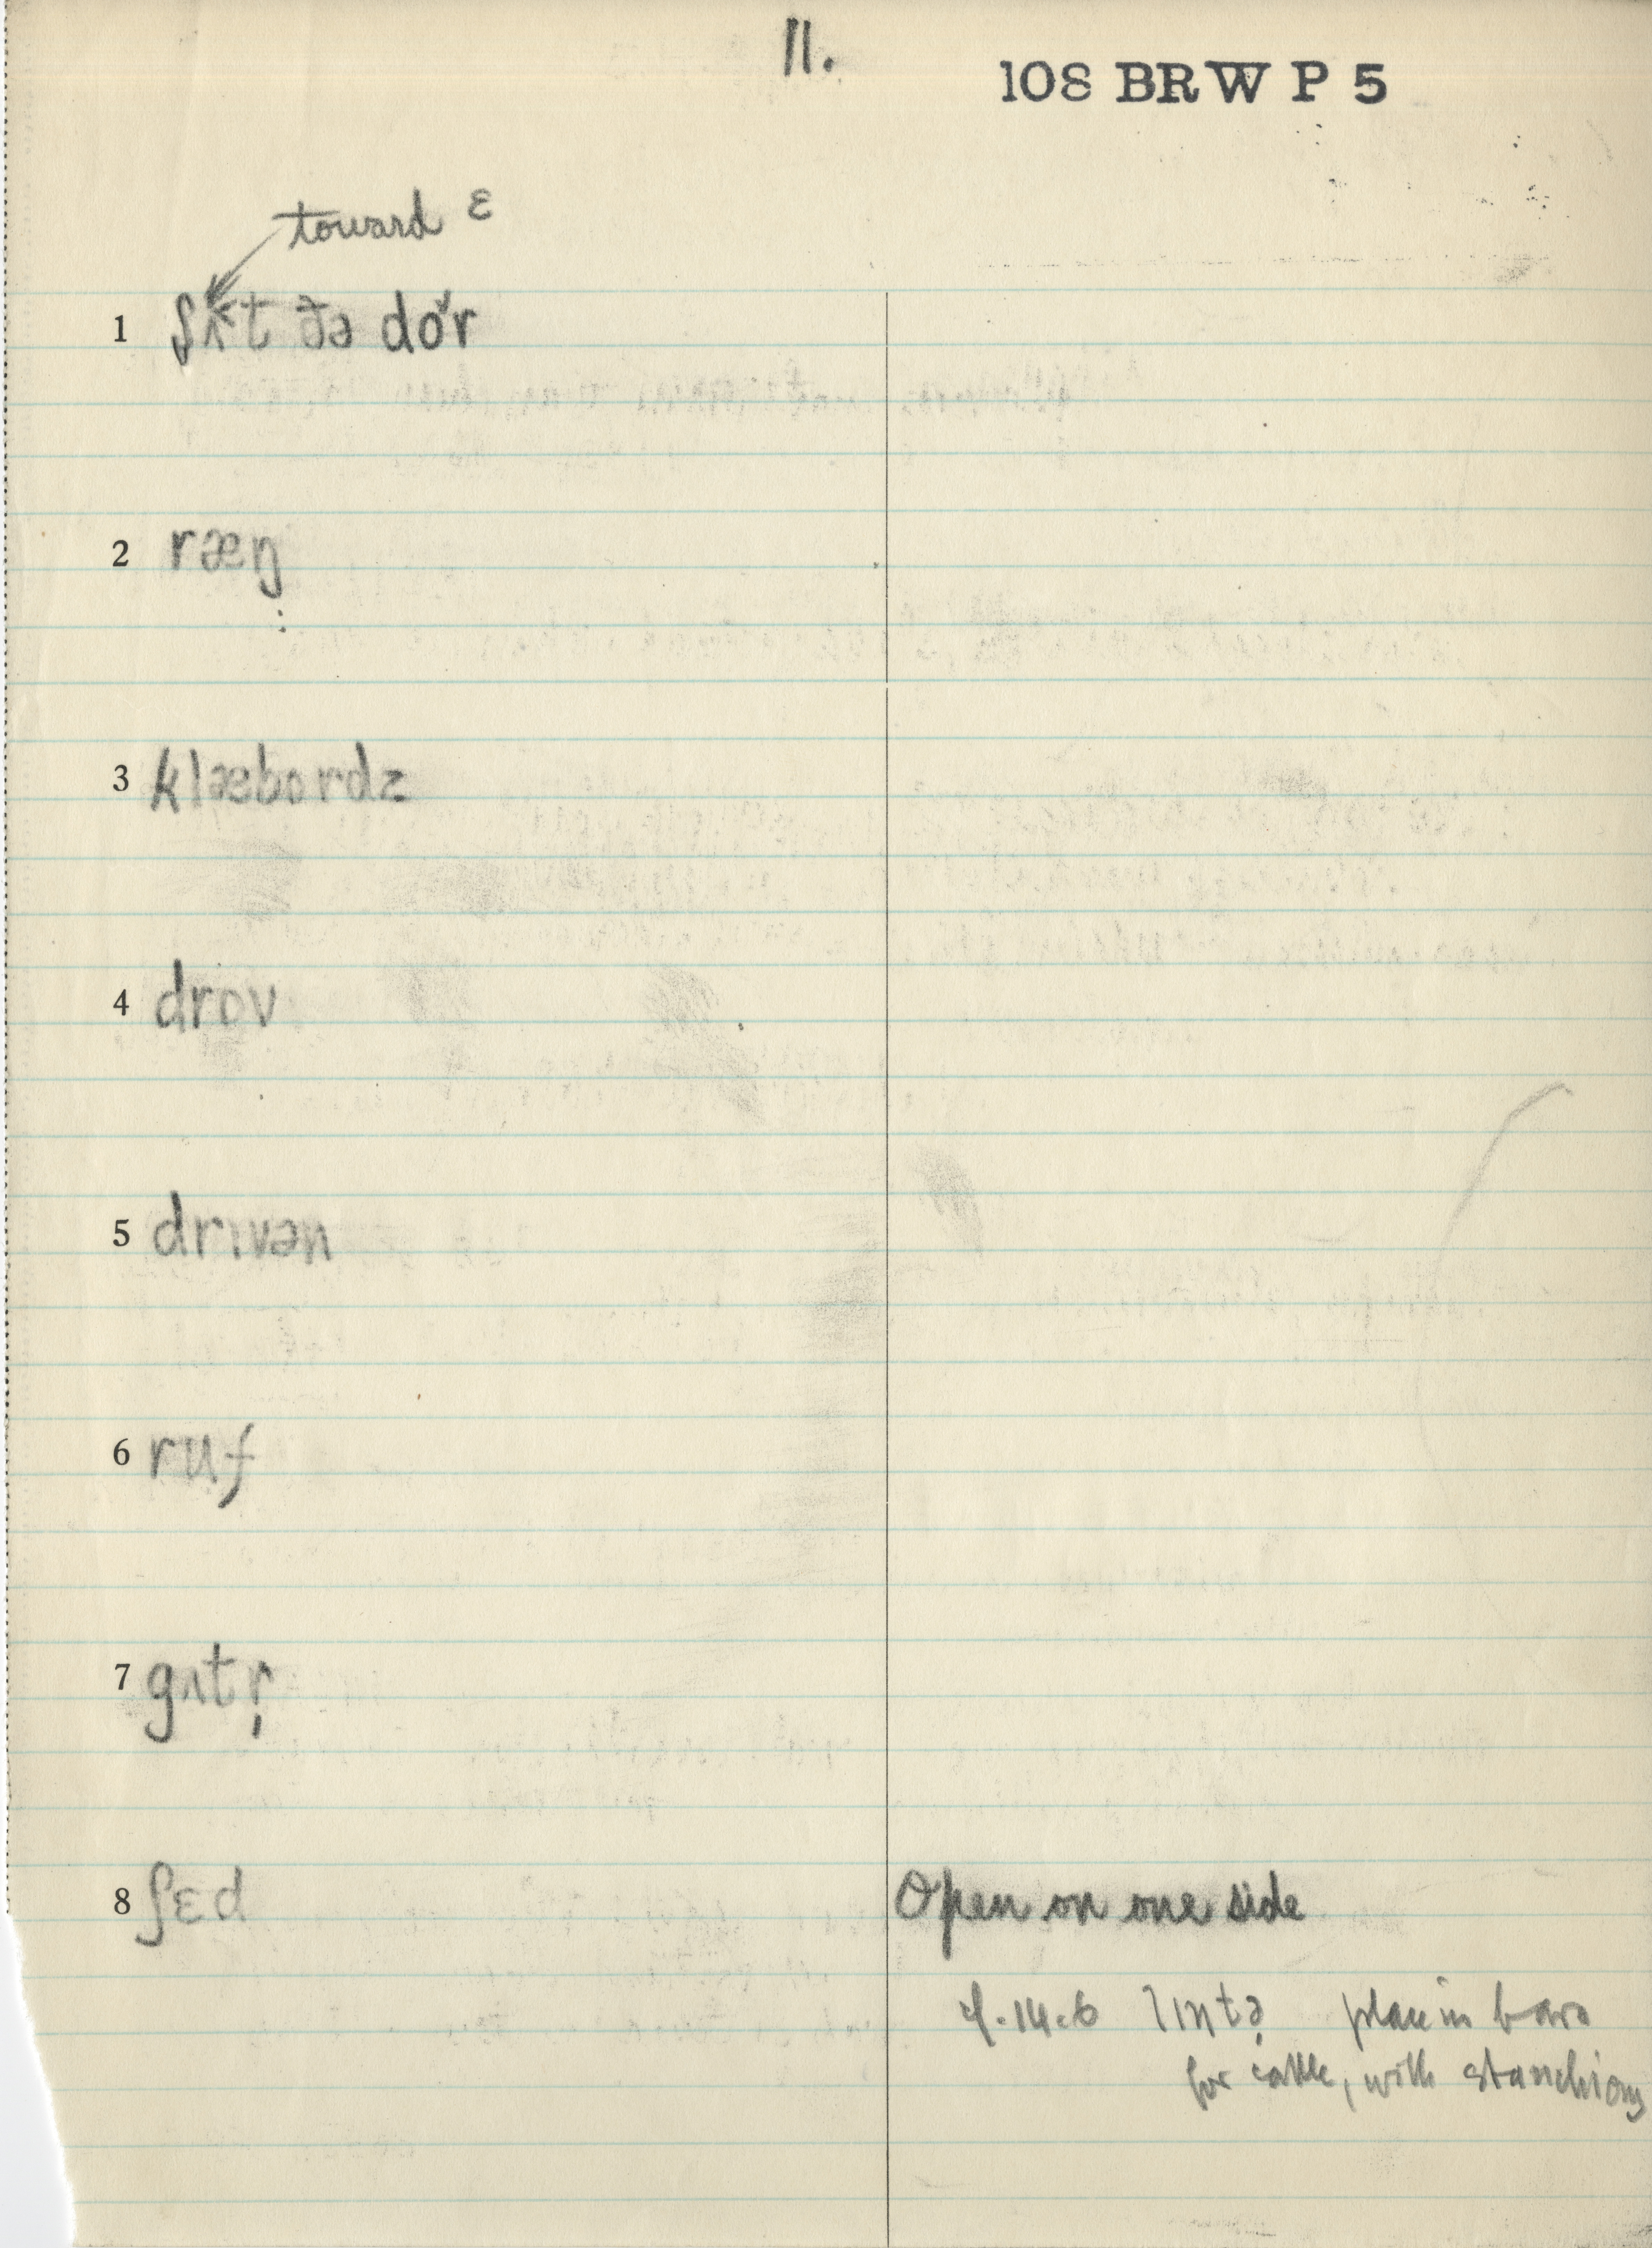 11.
108 BRW P 5
toward ε
1 ʃʌ˂t ðə dɔ̌r
2 ræŋ
3 klæbordz
4 drov
5 drɪvən
6 ruf
7 gʌtr̩
8 ʃɛd Open on one side
cf. 14.6 lɪntə̣ place in barn
for cattle, with stanchions